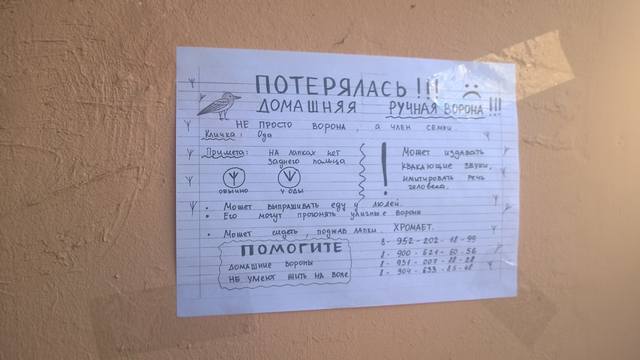 ПОТЕРЯЛАСЬ!!!
ДОМАШНЯЯ РУЧНАЯ ВОРОНА!!!
НЕ ПРОСТО ВОРОНА, а член семьи
Кличка: Ода
Примета: НА ЛАПКАХ НЕТ
заднего пальца
обычно У ОДЫ
! Может издавать
квакающие звуки,
имитировать речь
человека.
• Может выпрашивать еду у людей.
• Его могут прогонять уличные вороны
• Может сидеть, поджав лапки. ХРОМАЕТ.
ПОМОГИТЕ
ДОМАШНИЕ ВОРОНЫ
НЕ УМЕЮТ ЖИТЬ НА ВОЛЕ
8-952-202-18-99
8-900-621-60-56
8-931-007-28-28
8-904-633-85-48